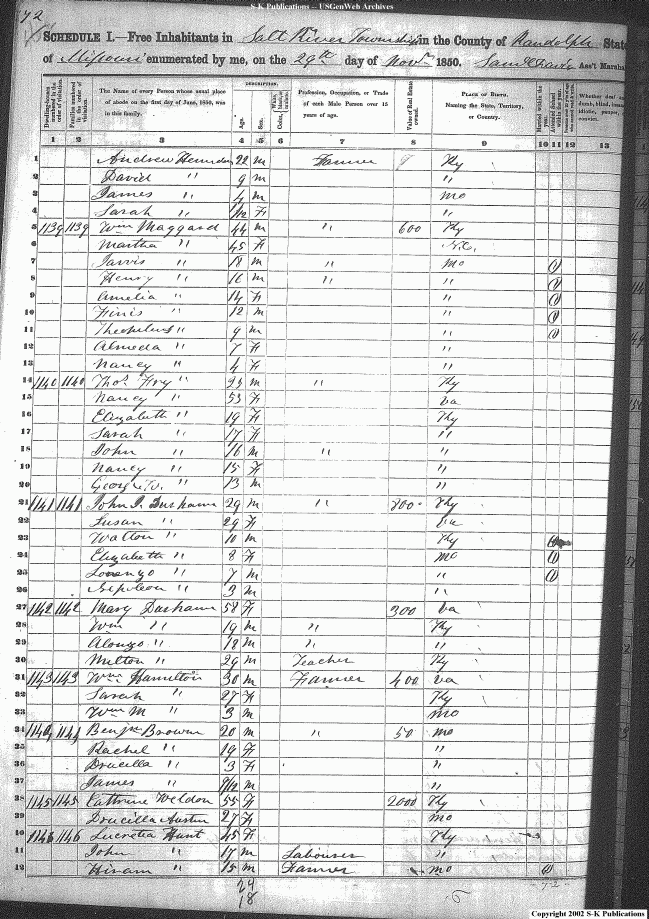 S-K Publications – USGenWeb Archives
72
SCHEDULE I.—Free Inhabitants in Salt River Township in the County of Randolph State
of Missouri enumerated by me, on the 29th day of Novr 1850. Ass't Marsha
Dwelling-houses numbered in the order of visitation. Families numbered in the order of visitation. The Name of every Person whose usual place of abode on the first day of June, 1850, was in this family. DESCRIPTION. Age. Sex. White, black, or mulatto. Profession, Occupation, or Trade of each Male Person over 15 years of age. Value of Real Estate owned. PLACE OF BIRTH. Naming the State, Territory, or Country. Married within the year. Attended School within the year. Whether deaf and dumb, blind, insane, idiotic, pauper, or convict.
1 2 3 4 5 6 7 8 9 10 11 12 13
1 Andrew 22 m Farmer Ky
2 David " 9 m "
3 James " 4 m mo
4 Sarah " F "
5 1139 1139 Wm Maggard 44 m " 600 Ky
6 Martha " 45 F N.C.
7 Jarvis " 18 m " mo 1
8 Henry " 16 m " " 1
9 Amelia " 14 F " 1
10 Finis " 12 m " 1
11 " 9 m " 1
12 Almeda " 7 F "
13 Nancy " 4 F "
14 1140 1140 Thos Fry " m " Ky
15 Nancy " 53 F Va
16 Elizabeth " 19 F Ky
17 Sarah " 17 F "
18 John " 16 m " "
19 Nancy " 15 F "
20 George W. " 13 m "
21 1141 1141 John Durham 29 m " 800 Ky
22 Susan " 29 F Va
23 Walton " 10 m Ky 1
24 Elizabeth " 8 F mo 1
25 Lorenzo " 7 m " 1
26 Napoleon " 3 m "
27 1142 1142 Mary Durham 58 F 300 Va
28 Wm " 19 m " Ky
29 Alonzo " 18 m " "
30 Milton " 29 m Teacher Ky
31 1143 1143 Wm Hamilton 30 m Farmer 400 Va
32 Sarah " 27 F Ky
33 Wm M " 3 m mo
34 1144 1144 Benjn Browne 20 m " 50 mo
35 Rachel " 19 F "
36 Drucilla " 3 F "
37 James " 9/12 m "
38 1145 1145 Cathrine Weldon 55 F 2000 Ky
39 Drucilla Austin 27 F mo
40 1146 1146 Lucretia Hunt 45 F Ky
41 John " 17 m Labourer "
42 Hiram " 15 m Farmer mo 1
24
18
Copyright 2002 S-K Publications